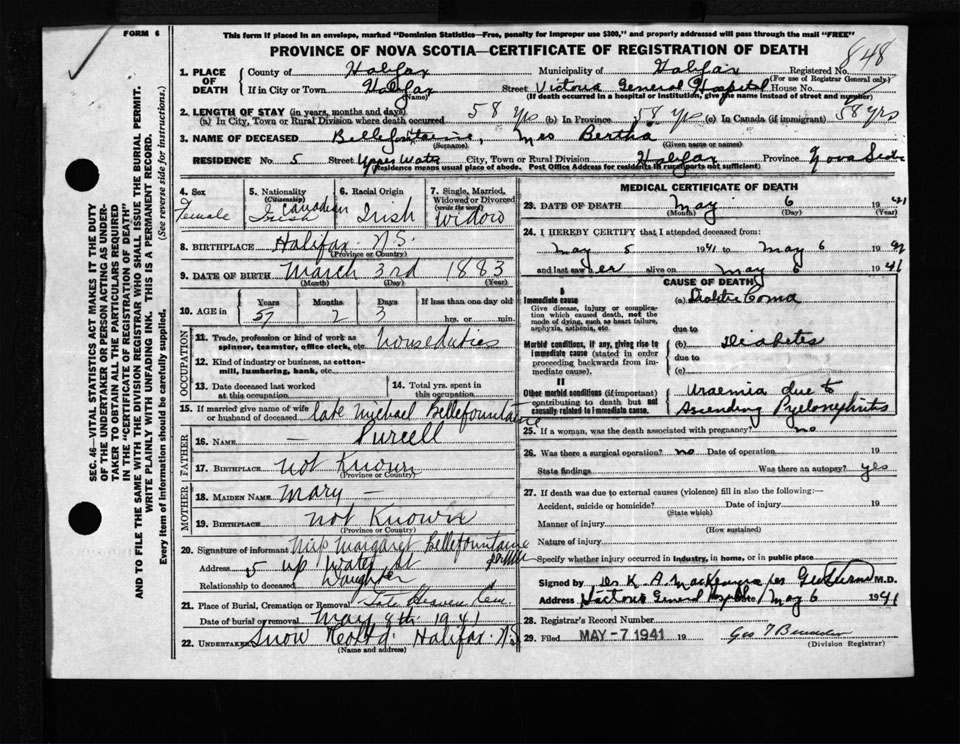 FORM 6
This form if placed in an envelope, marked "Dominion Statistics—Free, penalty for improper use $300," and properly addressed will pass through the mail "FREE"
PROVINCE OF NOVA SCOTIA—CERTIFICATE OF REGISTRATION OF DEATH
848
1. PLACE OF DEATH
County of Halifax Municipality of Halifax Registered No.
(For use of Registrar General only)
If in City or Town Halifax Street Victoria General Hospital House No.
(Name) (If death occurred in a hospital or institution, give the name instead of street and number)
2. LENGTH OF STAY (in years, months and days)
(a) In City, Town or Rural Division where death occurred 58 yrs (b) In Province 58 yrs (c) In Canada (if immigrant) 58 yrs
3. NAME OF DECEASED Bellefontaine, Mrs Bertha
(Surname) (Given name or names)
RESIDENCE No. 5 Street Upper Water City, Town or Rural Division Halifax Province Nova Scotia
(Residence means usual place of abode. Post Office Address for residents in rural parts not sufficient)
4. Sex
Female
5. Nationality
(Citizenship)
Canadian
6. Racial Origin
Irish
7. Single, Married, Widowed or Divorced
(write the word)
Widow
8. BIRTHPLACE Halifax N.S.
(Province or Country)
9. DATE OF BIRTH March 3rd 1883
(Month) (Day) (Year)
10. AGE in Years Months Days If less than one day old
57 2 3 hrs. or min.
OCCUPATION
11. Trade, profession or kind of work as spinner, teamster, office clerk, etc. house duties
12. Kind of industry or business, as cotton-mill, lumbering, bank, etc.
13. Date deceased last worked at this occupation
14. Total yrs. spent in this occupation
15. If married give name of wife or husband of deceased late Michael Bellefountaine
FATHER
16. NAME — Purcell
17. BIRTHPLACE Not Known
(Province or Country)
MOTHER
18. MAIDEN NAME Mary —
19. BIRTHPLACE Not Known
(Province or Country)
20. Signature of informant Miss Margaret Bellefountaine
Address 5 up Water St
Relationship to deceased Daughter
21. Place of Burial, Cremation or Removal
Date of burial or removal May 8th 1941
22. Undertaker Snow & Co Ltd. Halifax N.S.
(Name and address)
MEDICAL CERTIFICATE OF DEATH
23. DATE OF DEATH May 6 1941
(Month) (Day) (Year)
24. I HEREBY CERTIFY that I attended deceased from:
May 5 1941 to May 6 19
and last saw her alive on May 6 1941
CAUSE OF DEATH
I
Immediate cause (a) Diabetic Coma
Give disease, injury or complication which caused death, not the mode of dying, such as heart failure, asphyxia, asthenia, etc.
due to
Morbid conditions, if any, giving rise to immediate cause (stated in order proceeding backwards from immediate cause).
(b) Diabetes
due to
(c)
II
Other morbid conditions (if important) contributing to death but not causally related to immediate cause.
Uraemia due to
Ascending Pyelonephritis
25. If a woman, was the death associated with pregnancy? no
26. Was there a surgical operation? no Date of operation 19
State findings Was there an autopsy? yes
27. If death was due to external causes (violence) fill in also the following:—
Accident, suicide or homicide? Date of injury 19
(State which)
Manner of injury
(How sustained)
Nature of injury
Specify whether injury occurred in industry, in home, or in public place
Signed by Dr K. A. MacKenzie M.D.
Address Victoria General Hospital Date May 6 1941
28. Registrar's Record Number
29. Filed MAY -7 1941 19
(Division Registrar)
SEC. 46—VITAL STATISTICS ACT MAKES IT THE DUTY OF THE UNDERTAKER OR PERSON ACTING AS UNDERTAKER TO OBTAIN ALL THE PARTICULARS REQUIRED IN THE "CERTIFICATE OF REGISTRATION OF DEATH" AND TO FILE THE SAME WITH THE DIVISION REGISTRAR WHO SHALL ISSUE THE BURIAL PERMIT.
WRITE PLAINLY WITH UNFADING INK. THIS IS A PERMANENT RECORD.
Every item of Information should be carefully supplied. (See reverse side for instructions.)